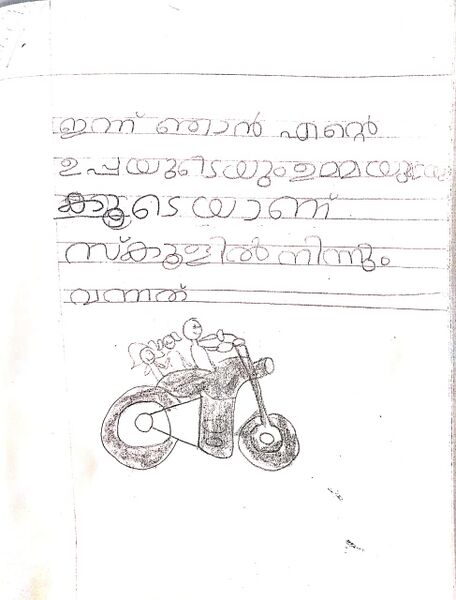 ഇന്ന് ഞാൻ എന്റെ
ഉപ്പയുടെയും ഉമ്മയുടെയും
കൂടെയാണ്
സ്കൂളിൽ നിന്നും
വന്നത്